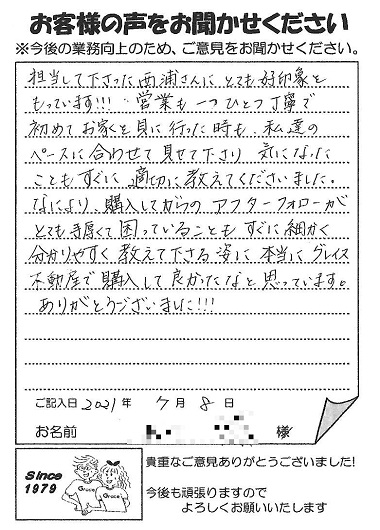 お客様の声をお聞かせください
※今後の業務向上のため、ご意見をお聞かせください。
担当して下さった西浦さんにとても好印象を
もっています!!! 営業も一つひとつ丁寧で
初めてお家を見に行った時も、私達の
ペースに合わせて見せて下さり 気になった
こともすぐに適切に教えてくださいました。
なにより、購入してからのアフターフォローが
とても手厚くて困っていることもすぐに細かく
分かりやすく教えて下さる姿に本当にグレイス
不動産で購入して良かったなと思っています。
ありがとうございました!!!
ご記入日 2021年 7月 8日
お名前 様
Since
1979
Grace
Grace
貴重なご意見ありがとうございました!
今後も頑張りますので
よろしくお願いいたします